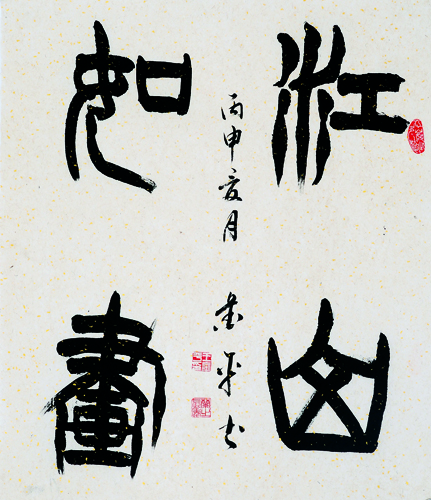 江山
如畫
丙申夏月